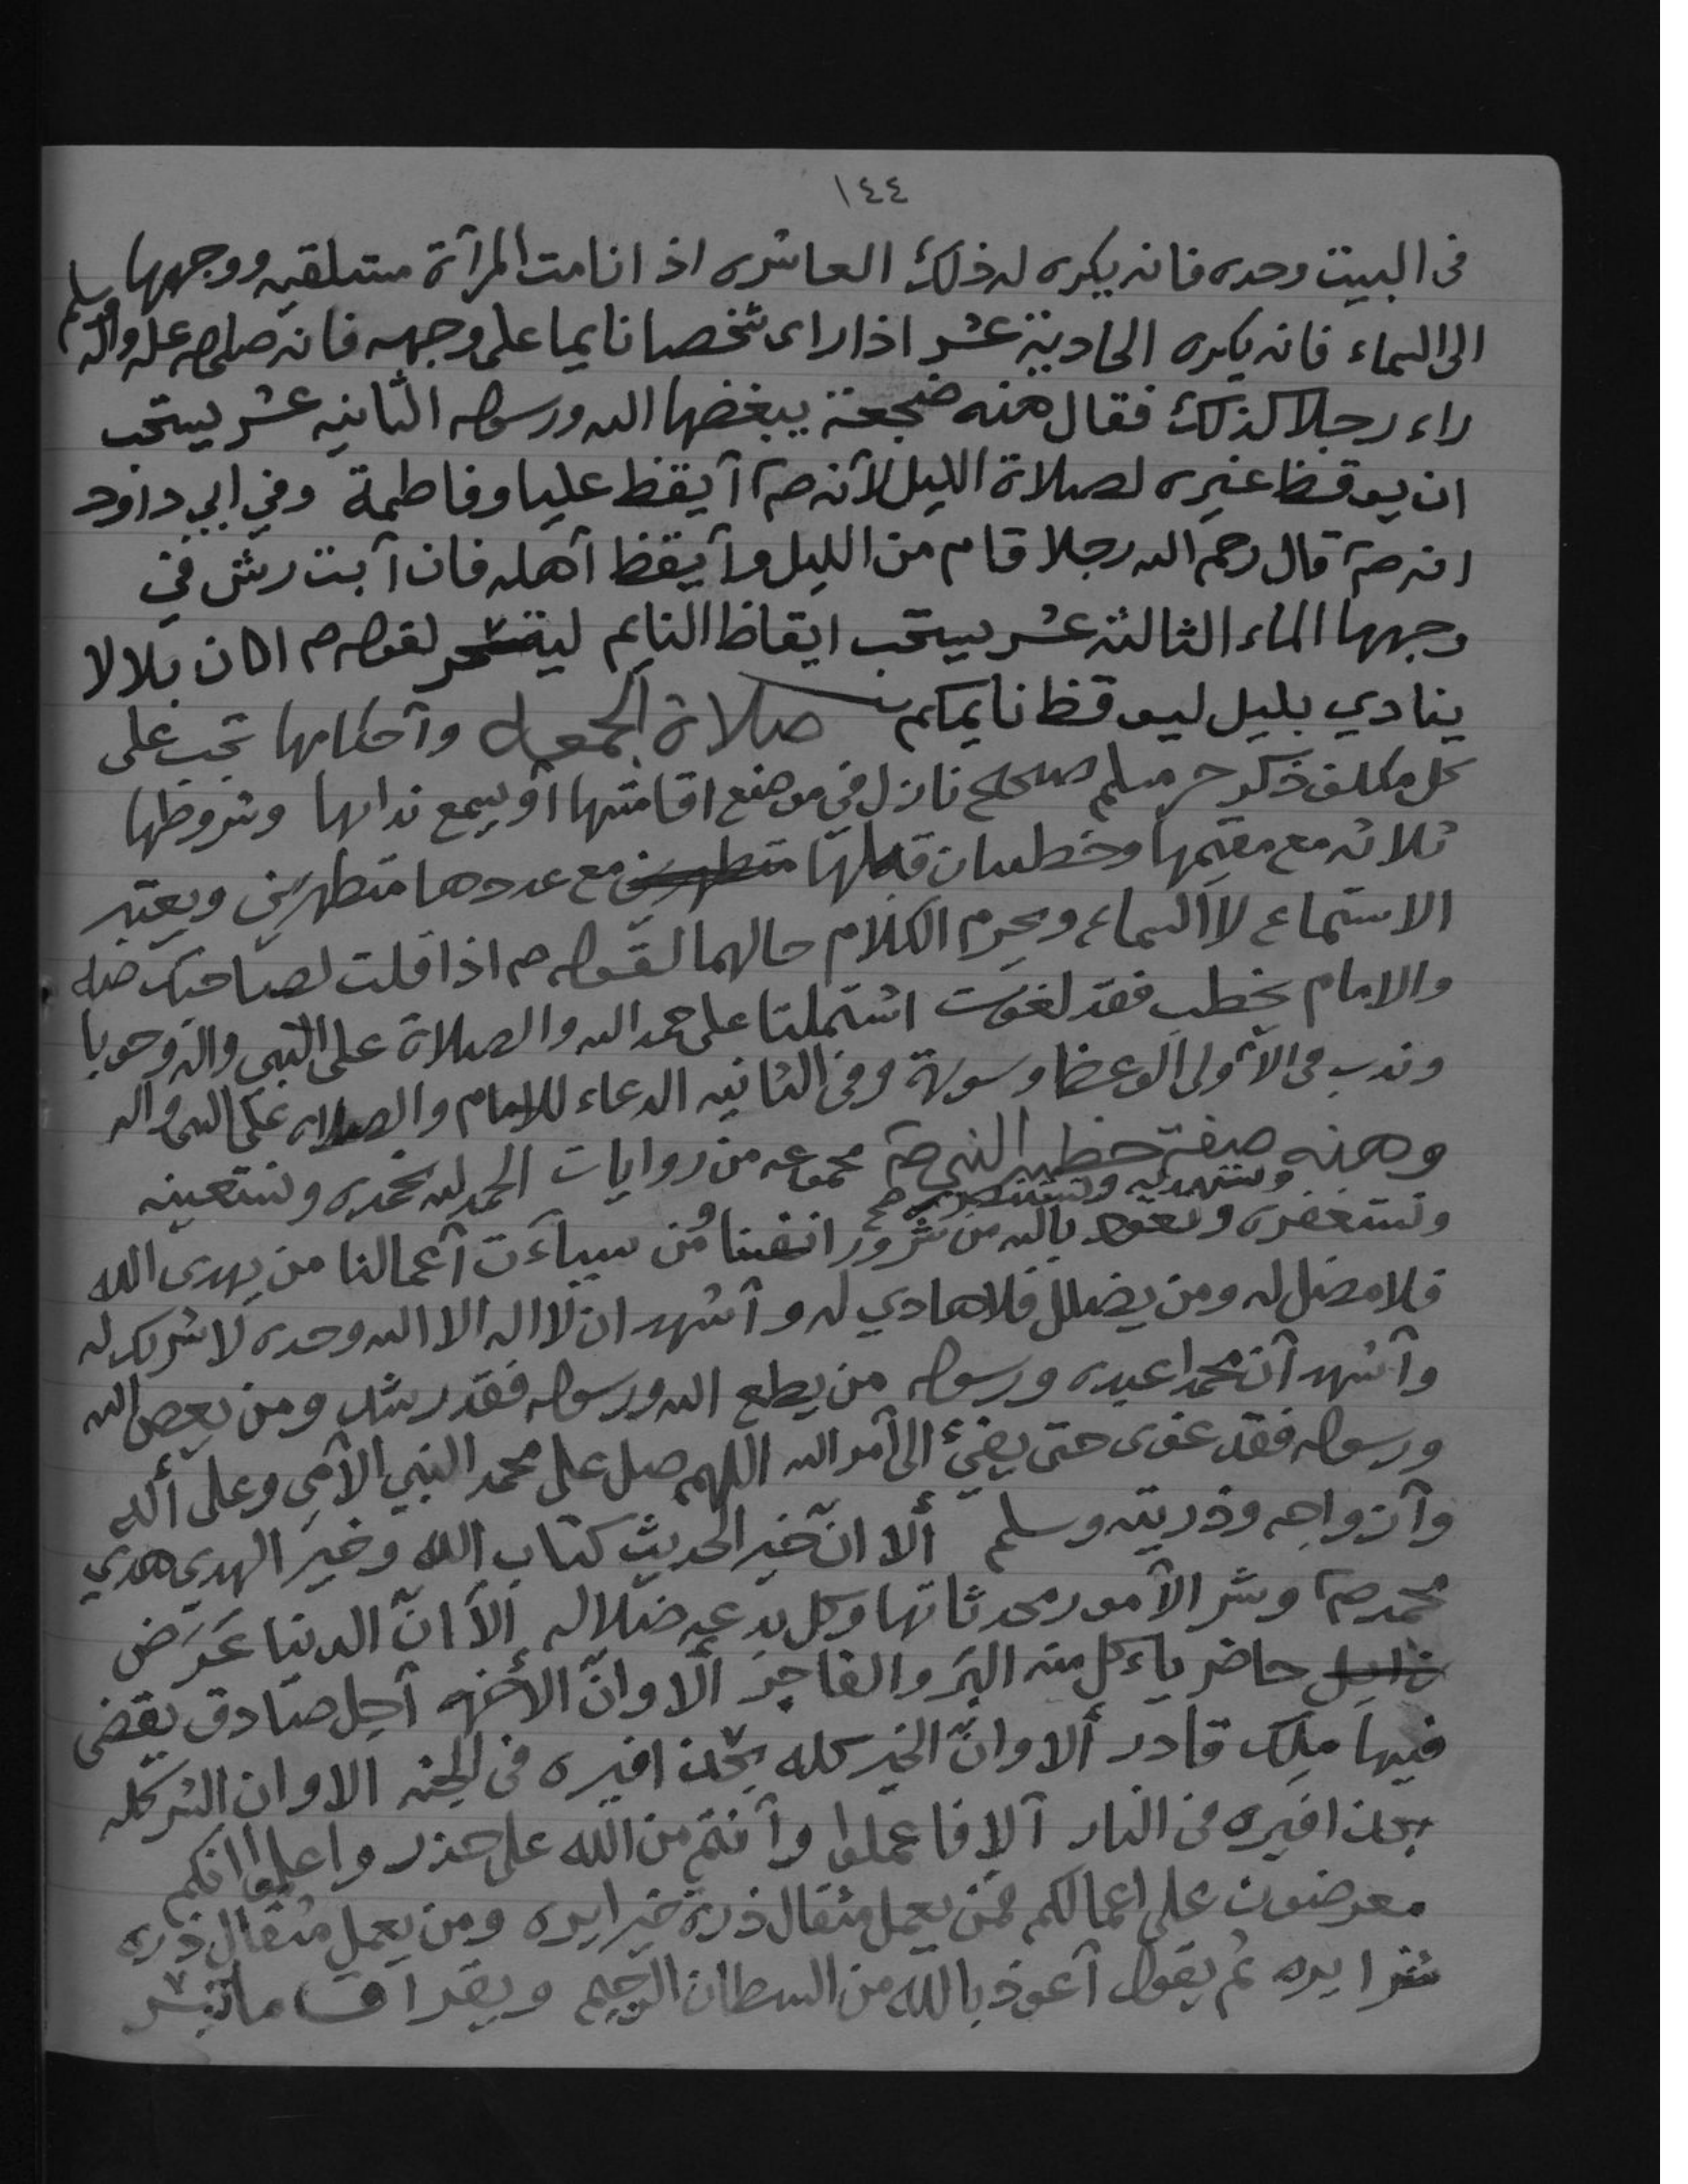 ١٤٤
فى البيت وحده فانه يكره له ذلك العاشره اذا نامت المرآة مستلقيه ووجهها
الى السماء فانه يكره الحادية عشر اذا راى شخصا نايما على وجهه فانه صلى الله عله واله وسلم
راء رجلا كذلك فقال هذه ضجعة يبغضها الله ورسوله الثانيه عشر يستحب
ان يوقظ غيره لصلاة الليل لآنه صم آيقظ عليا وفاطمة وفي ابي داود
انه صم قال رحم الله رجلا قام من الليل وآيقظ آهله فان آبت رش في
وجهها الماء الثالثه عشر يستحب ايقاظ النايم ليتسحر لقوله م ان بلالا
ينادي بليل ليوقظ نايمكم صلاة الجمعه وآحكامها تجب على
كل مكلف ذكر حر مسلم صحيح نازل في موضع اقامتها آو يسمع نداها وشروطها
ثلاثه مع مقيمها وخطبتان قبلها مع عددها متطهرين ويعتبر
الاستماع لا السماع ويحرم الكلام حالهما لقوله م اذا قلت لصاحبك صه
والامام يخطب فقد لغوت اشتملتا على حمد الله والصلاة على النبي واله وجوبا
وندب فى الآولى الوعظ وسورة وفى الثانيه الدعاء للامام والصلاه على النبى واله
وهذه صفة خطبه النبي صم مجموعه من روايات الحمد لله نحمده ونستعينه
ونستهديه ونستنصره صح
ونستغفره ونعوذ بالله من شرور انفسنا ومن سيآءت آعمالنا من يهدى الله
فلا مضل له ومن يضلل فلا هادي له وآشهد ان لا اله الا الله وحده لا شريك له
وآشهد آن محمدا عبده ورسوله من يطع الله ورسوله فقد رشد ومن يعص الله
ورسوله فقد غوى حتى يفيئ الى آمر الله اللهم صل على محمد النبي الآمي وعلى أله
وآزواجه وذريته وسلم ألا انّ خير الحديث كتاب الله وخير الهدي هدي
محمد صم وشر الآمور محدثاتها وكل بدعه ضلاله ألا انّ الدنيا عَرَض
حاضر ياءكل منه البر والفاجر ألا وانّ الأخره آجل صادق يقضى
فيها ملك قادر ألا وانّ الخير كله بحذافيره فى الجنه الا وان الشر كله
بحذافيره فى النار آلا فاعملوا وآنتم من الله على حذر واعلموا انكم
معرضون على اعمالكم فمن يعمل مثقال ذرة خيرا يره ومن يعمل مثقال ذره
شرا يره ثم يقول آعوذ بالله من السطان الرجيم ويقرا ق ماتيسر